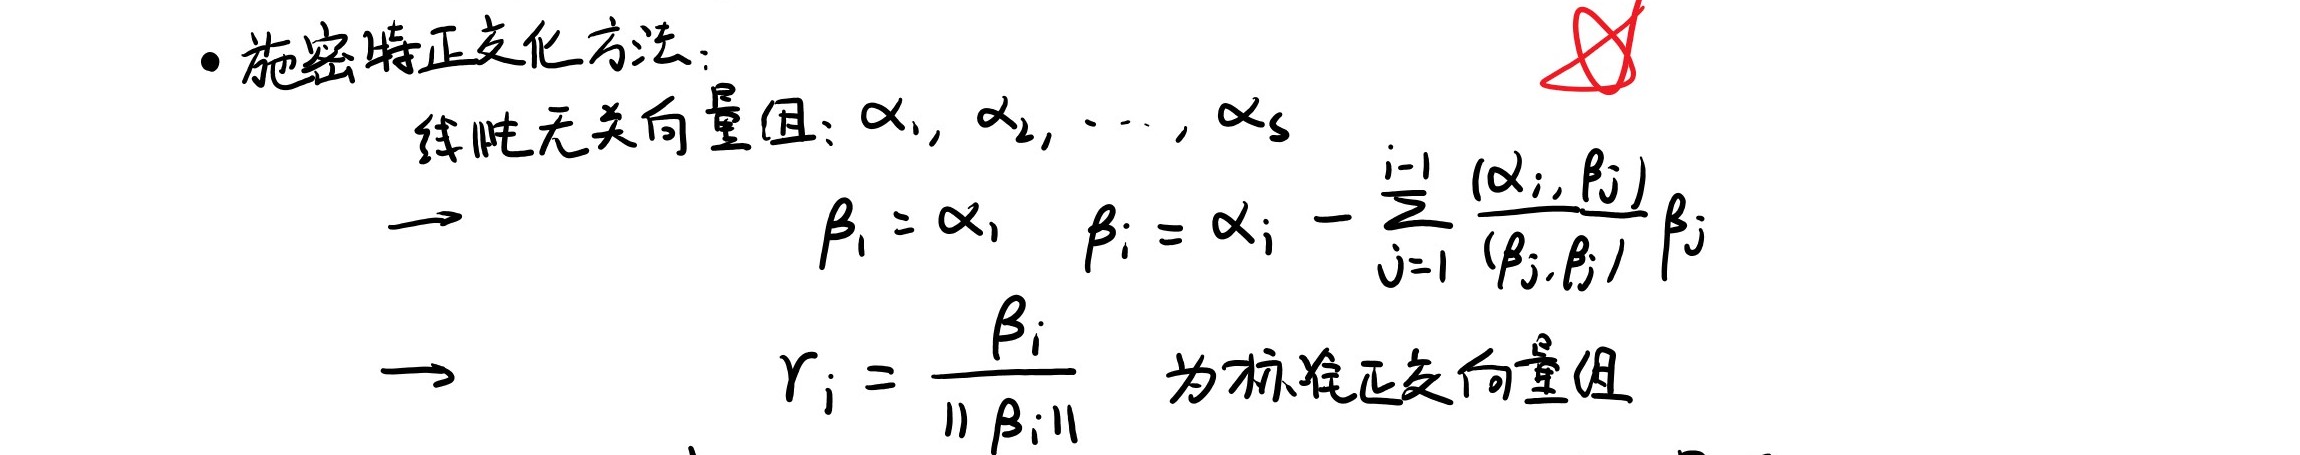 • 施密特正交化方法:
线性无关向量组: α₁, α₂, ⋯, αₛ
→ β₁ = α₁ βᵢ = αᵢ − ∑_{j=1}^{i-1} (αᵢ, βⱼ)/(βⱼ, βⱼ) βⱼ
→ γᵢ = βᵢ/||βᵢ|| 为标准正交向量组